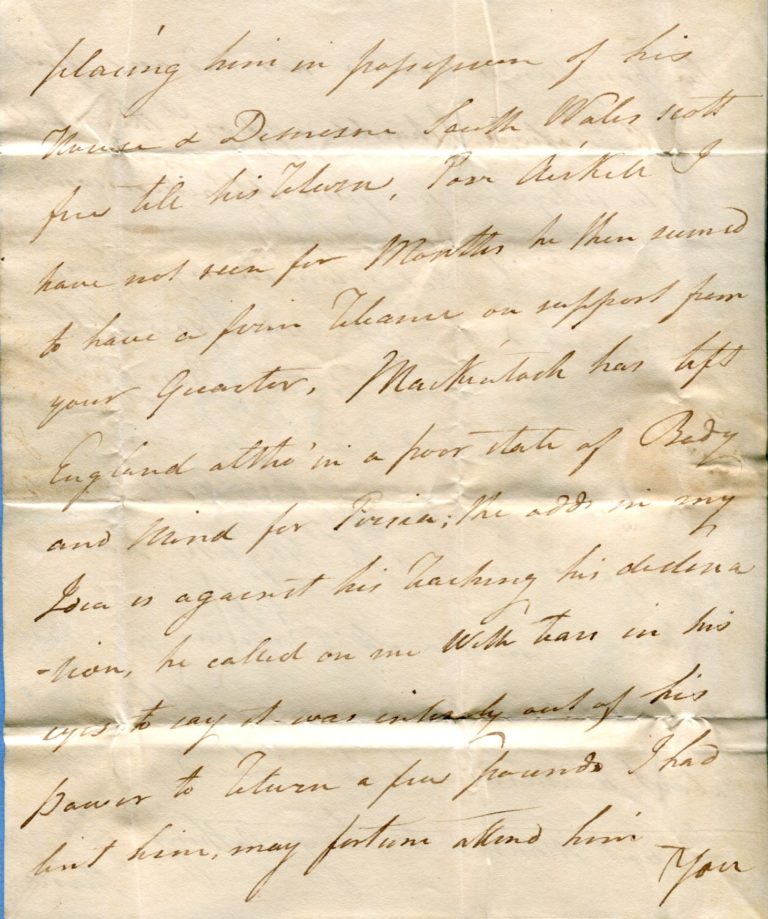 placing him in possession of his
House & Demesne South Wales scott
free till his Return, Poor Aiskell I
have not seen for Months he then seemed
to have a firm Reliance on support from
your Quarter, Mackintosh has left
England altho' in a poor state of Body
and Mind for Persia; the odds in my
Idea is against his Reaching his destina
-tion, he called on me With tears in his
eyes to say it was intirely out of his
power to Return a few pounds I had
lent him, may fortune attend him
You